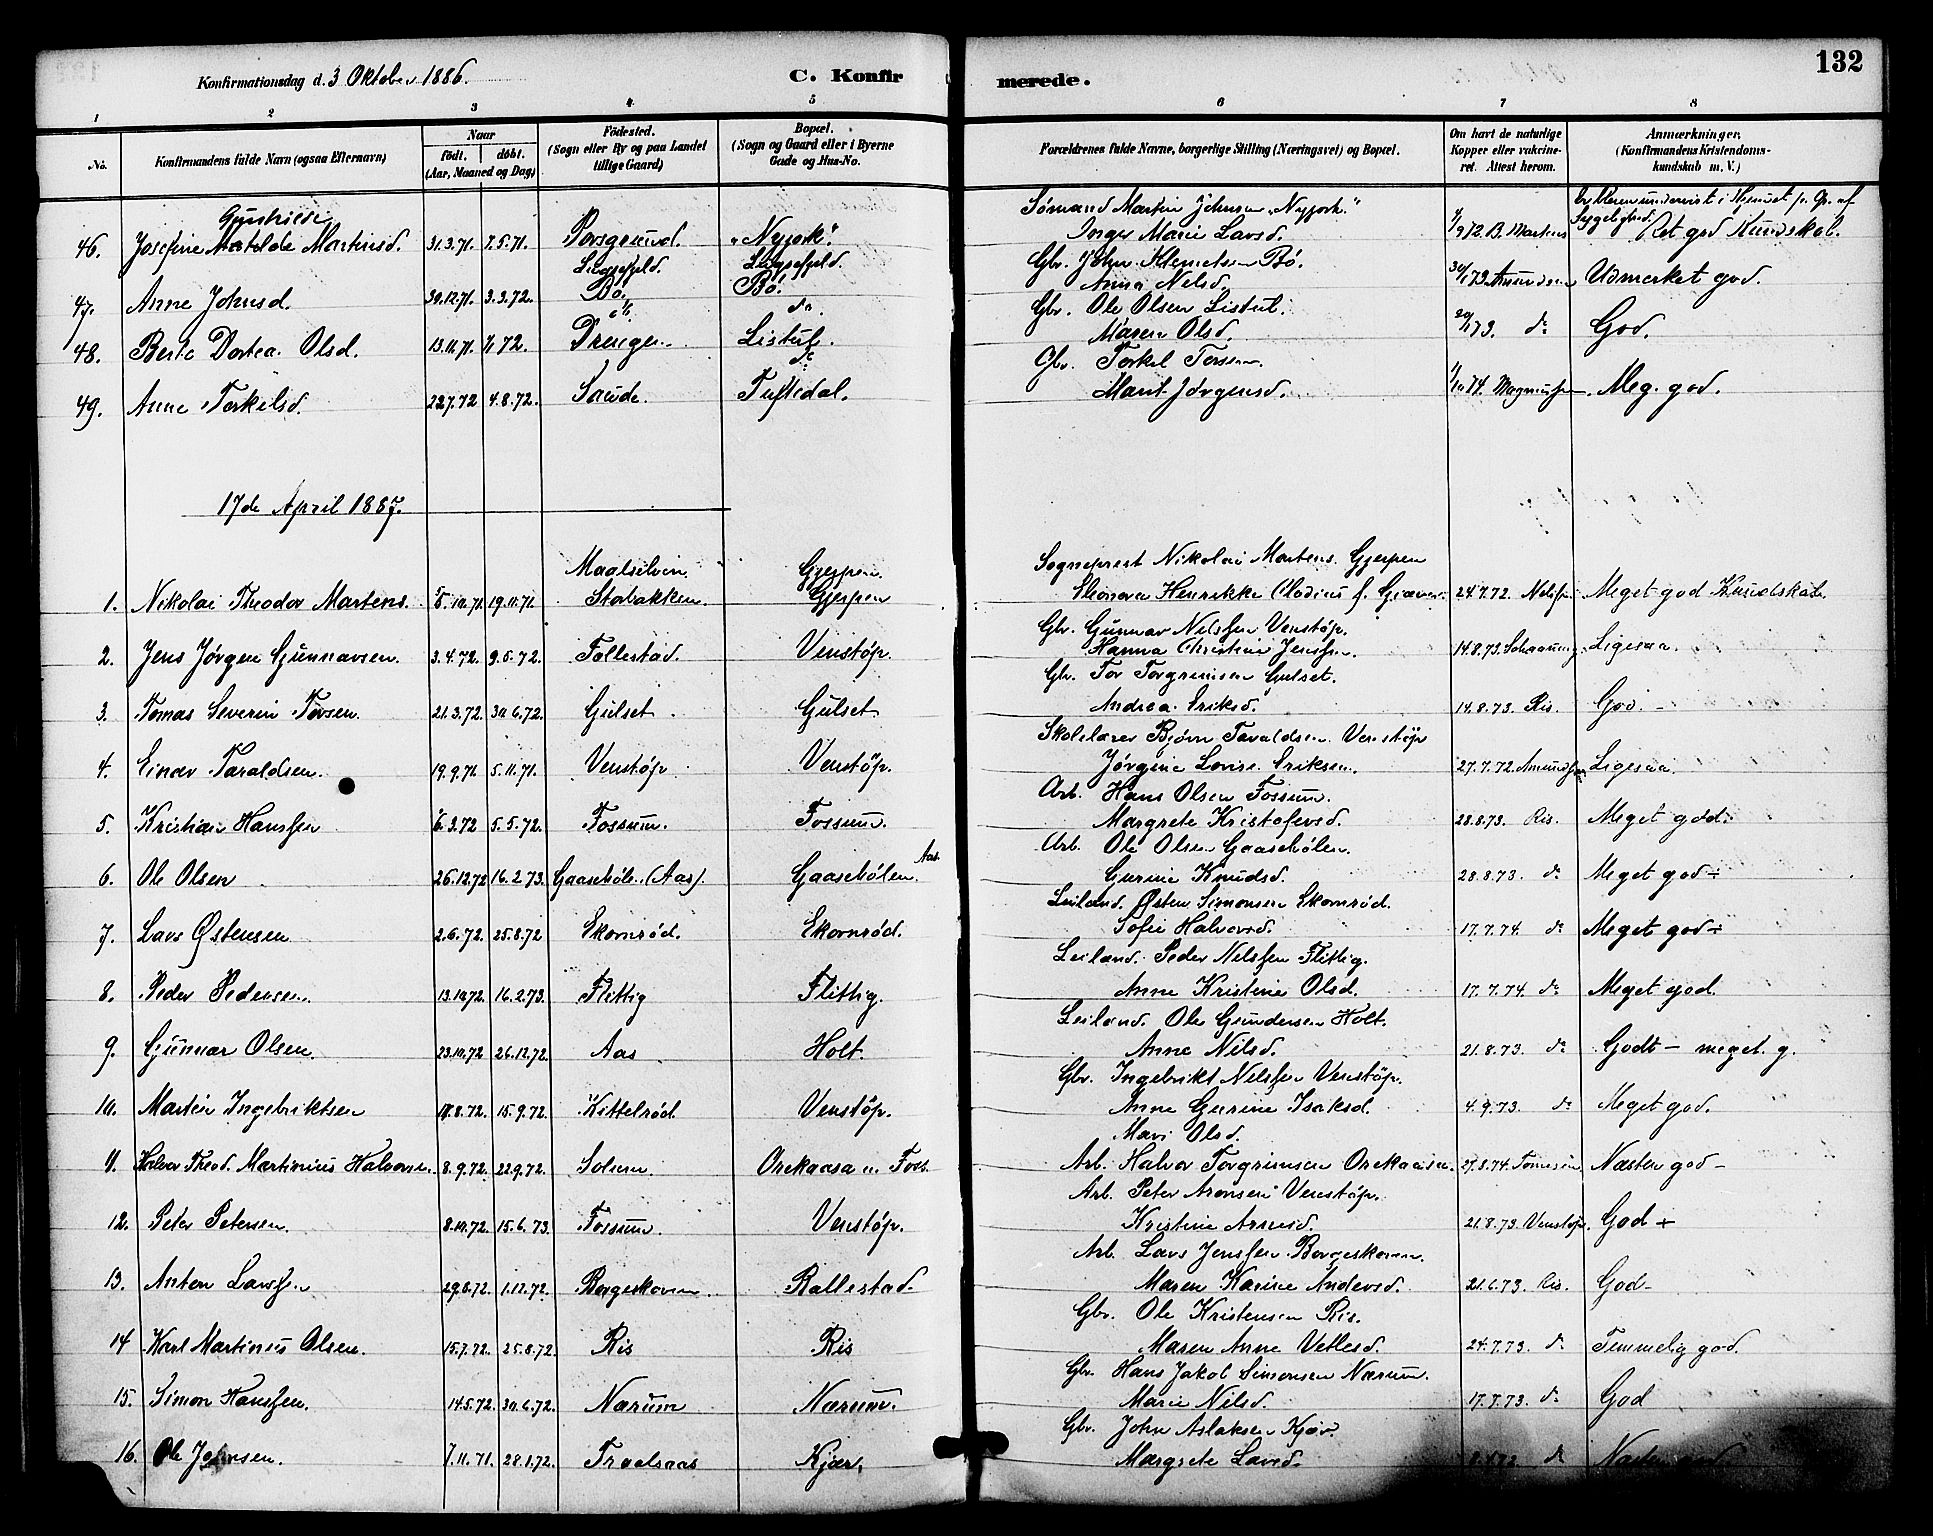 132
Konfirmationsdag d. 3 Oktober 1886.
C. Konfirmerede.
1 2 3 4 5 6 7 8
No.
Konfirmandens fulde Navn (ogsaa Efternavn)
Naar
födt. döbt.
(Aar, Maaned og Dag)
Födested.
(Sogn eller By og paa Landet
tillige Gaard)
Bopæl.
(Sogn og Gaard eller i Byerne
Gade og Hus-No.
Forældrenes fulde Navne, borgerlige Stilling (Næringsvei) og Bopæl.
Om havt de naturlige
Kopper eller vakcine-
ret. Attest herom.
Anmærkninger,
(Konfirmandens Kristendoms-
kundskab m. V.)
Sømand Martin Johnsen "Nyjork."
46. Josefine Matilde Martinsd. 31.3.71. 7.5.71. Porsgrund. "Nyjork". Inger Marie Larsd. B. Martens Ret god Kundskab.
Luksefjeld. Luksefjeld. Gbr. John Klemetsen Bø.
47. Anne Johnsd. 30.12.71. 3.3.72. Bø. Bø. Anna Nilsd. Amundsen Udmerket god.
do. do. Gbr. Ole Olsen Listul.
48. Berte Dortea Olsd. 13.11.71. 1/1 72. Drengen. Listul. Maren Olsd. do God.
do Gbr. Torkel Torsen
49. Anne Torkilsd. 22.7.72 4.8.72. Saude. Tuftedal. Marit Jørgensd. Magnussen. Meg. god.
17de April 1887.
Maalselven. Gjerpen. Sogneprest Nikolai Martens. Gjerpen
1. Nikolai Theodor Martens. 5.10.71. 19.11.71. Stabakken. Gjerpen Eleonora Henrikke Clodius f. Græver. 24.7.72. Nilsen Meget god Kundskab.
Gbr. Gunnar Nilssen Venstøp.
2. Jens Jørgen Gunnarsen. 3.4.72. 9.5.72. Follestad. Venstøp. Hanna Christine Jenssen. 14.8.73. Ligesaa.
Gbr. Tor Torgrimsen Gulset.
3. Tomas Severin Torsen. 21.3.72. 30.6.72. Gulset. Gulset Andrea Eriksd. 14.8.73. Ris. God.
Skolelærer Bjørn Taraldsen. Venstøp
4. Einar Taraldsen. 19.9.71 5.11.71. Venstøp Venstøp. Jørgine Lovise Eriksen. 27.7.72. Amundsen Ligesaa.
Arb. Hans Olsen Fossum.
5. Kristian Hanssen 6.3.72 5.5.72. Fossum. Fossum. Margrete Kristofersd. 28.8.73. Ris. Meget god.
Arb. Ole Olsen Gaasehølen.
6. Ole Olsen 26.12.72 16.2.73. Gaasehøle. (Aas). Gaasehølen. Aas. Gurine Knudsd. 28.8.73. do Meget god ÷
Leiland. Østen Simonsen Ekornrød.
7. Lars Østensen 2.6.72. 25.8.72 Ekornrød. Ekornrød. Sofie Halvorsd. 17.7.74. do Meget god ÷
Leiland. Peder Nilssen Flittig.
8. Peder Pedersen. 13.10.72. 16.2.73. Flittig Flittig. Anne Kristine Olsd. 17.7.74. do Meget god.
Leiland. Ole Gundersen Holt.
9. Gunnar Olsen. 23.10.72 26.12.72. Aas Holt. Anne Nilsd. 21.8.73. do Godt - meget g.
Gbr. Ingebrikt Nilssen Venstøp.
10. Martin Ingebriktsen 11.8.72. 15.9.72. Kittelrød Venstøp. Anne Gurine Isaksd. 4.9.73. do Meget god.
Mari Olsd.
11. Halvor Theod. Martinius Halvorsen 8.9.72. 22.9.72. Solum Orekaasa u. Foss. Arb. Halvor Torgrimsen Orekaasa. 27.8.74. Næsten god -
Arb. Peter Aronsen Venstøp.
12. Peter Petersen. 8.10.72. 15.6.73. Fossum. Venstøp. Kristine Arnesd. 21.8.73. Venstøp. God +
Arb. Lars Jenssen Borgeskoven.
13. Anton Larssen 29.8.72. 1.12.72. Borgeskoven Ballestad. Maren Karine Andersd. 21.6.73. Ris. God -
Gbr. Ole Kristensen Ris.
14 Karl Martinius Olsen. 15.7.72. 25.8.72. Ris Ris Maren Anne Vetlesd. 24.7.73. do Temmelig god.
Gbr. Hans Jakob Simonsen Nærum.
15. Simon Hanssen. 14.5.72. 30.6.72. Nærum Nærum. Maria Nilsd. 17.7.73. do God
Gbr. John Aslaksen Kjær.
16. Ole Johnsen. 7.11.71. 28.1.72. Traalsaas Kjær. Margrete Larsd. do Næsten god